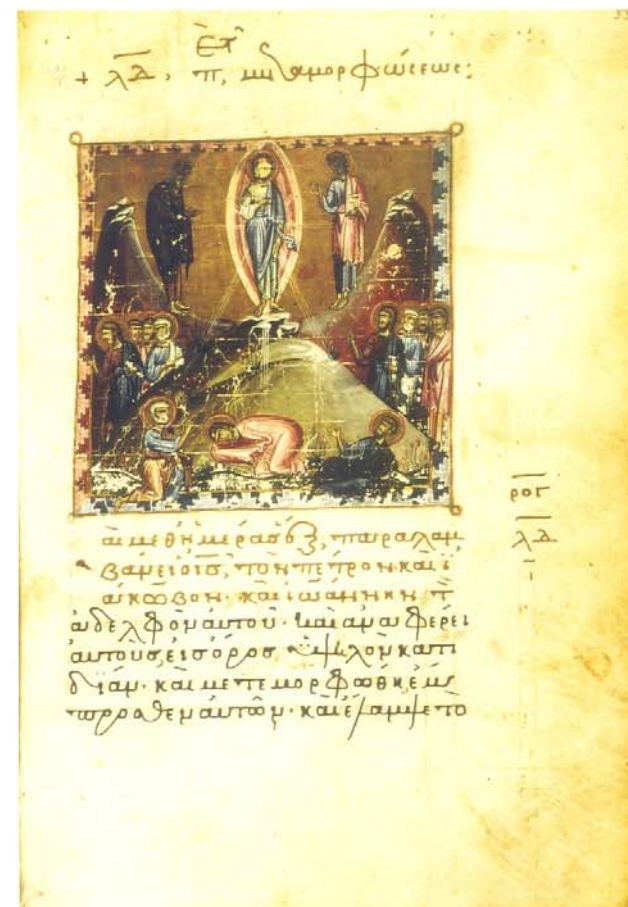 + λδ, π, μεταμορφώσεως:
αι μεθ ἡμέρασ ἓξ, παραλαμ
βάνει ὁ ισ, τὸν πέτρον καὶ ἰ
άκωβον· καὶ ἰωάννην τ
ἀδελφὸν αὐτοῦ· καὶ ἀναφέρει
αὐτοὺσ, εἰσ ὄροσ ὑψιλὸν κατι
δίαν· καὶ μετεμορφώθη, ἔμ
προσθεν αὐτῶν· καὶ ἔλαμψε τὸ
ρογ
λδ